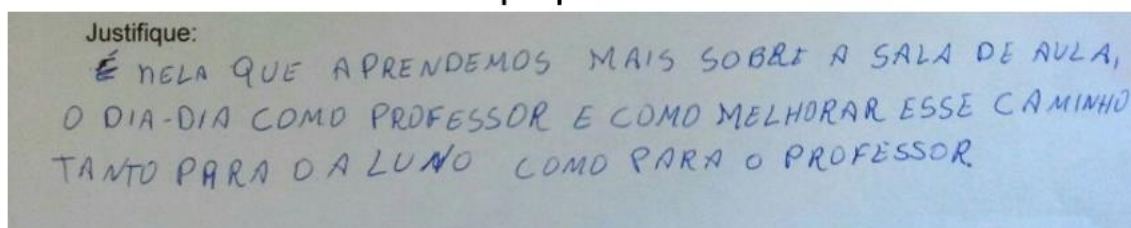 Justifique:
É NELA QUE APRENDEMOS MAIS SOBRE A SALA DE AULA,
O DIA-DIA COMO PROFESSOR E COMO MELHORAR ESSE CAMINHO
TANTO PARA O ALUNO COMO PARA O PROFESSOR.